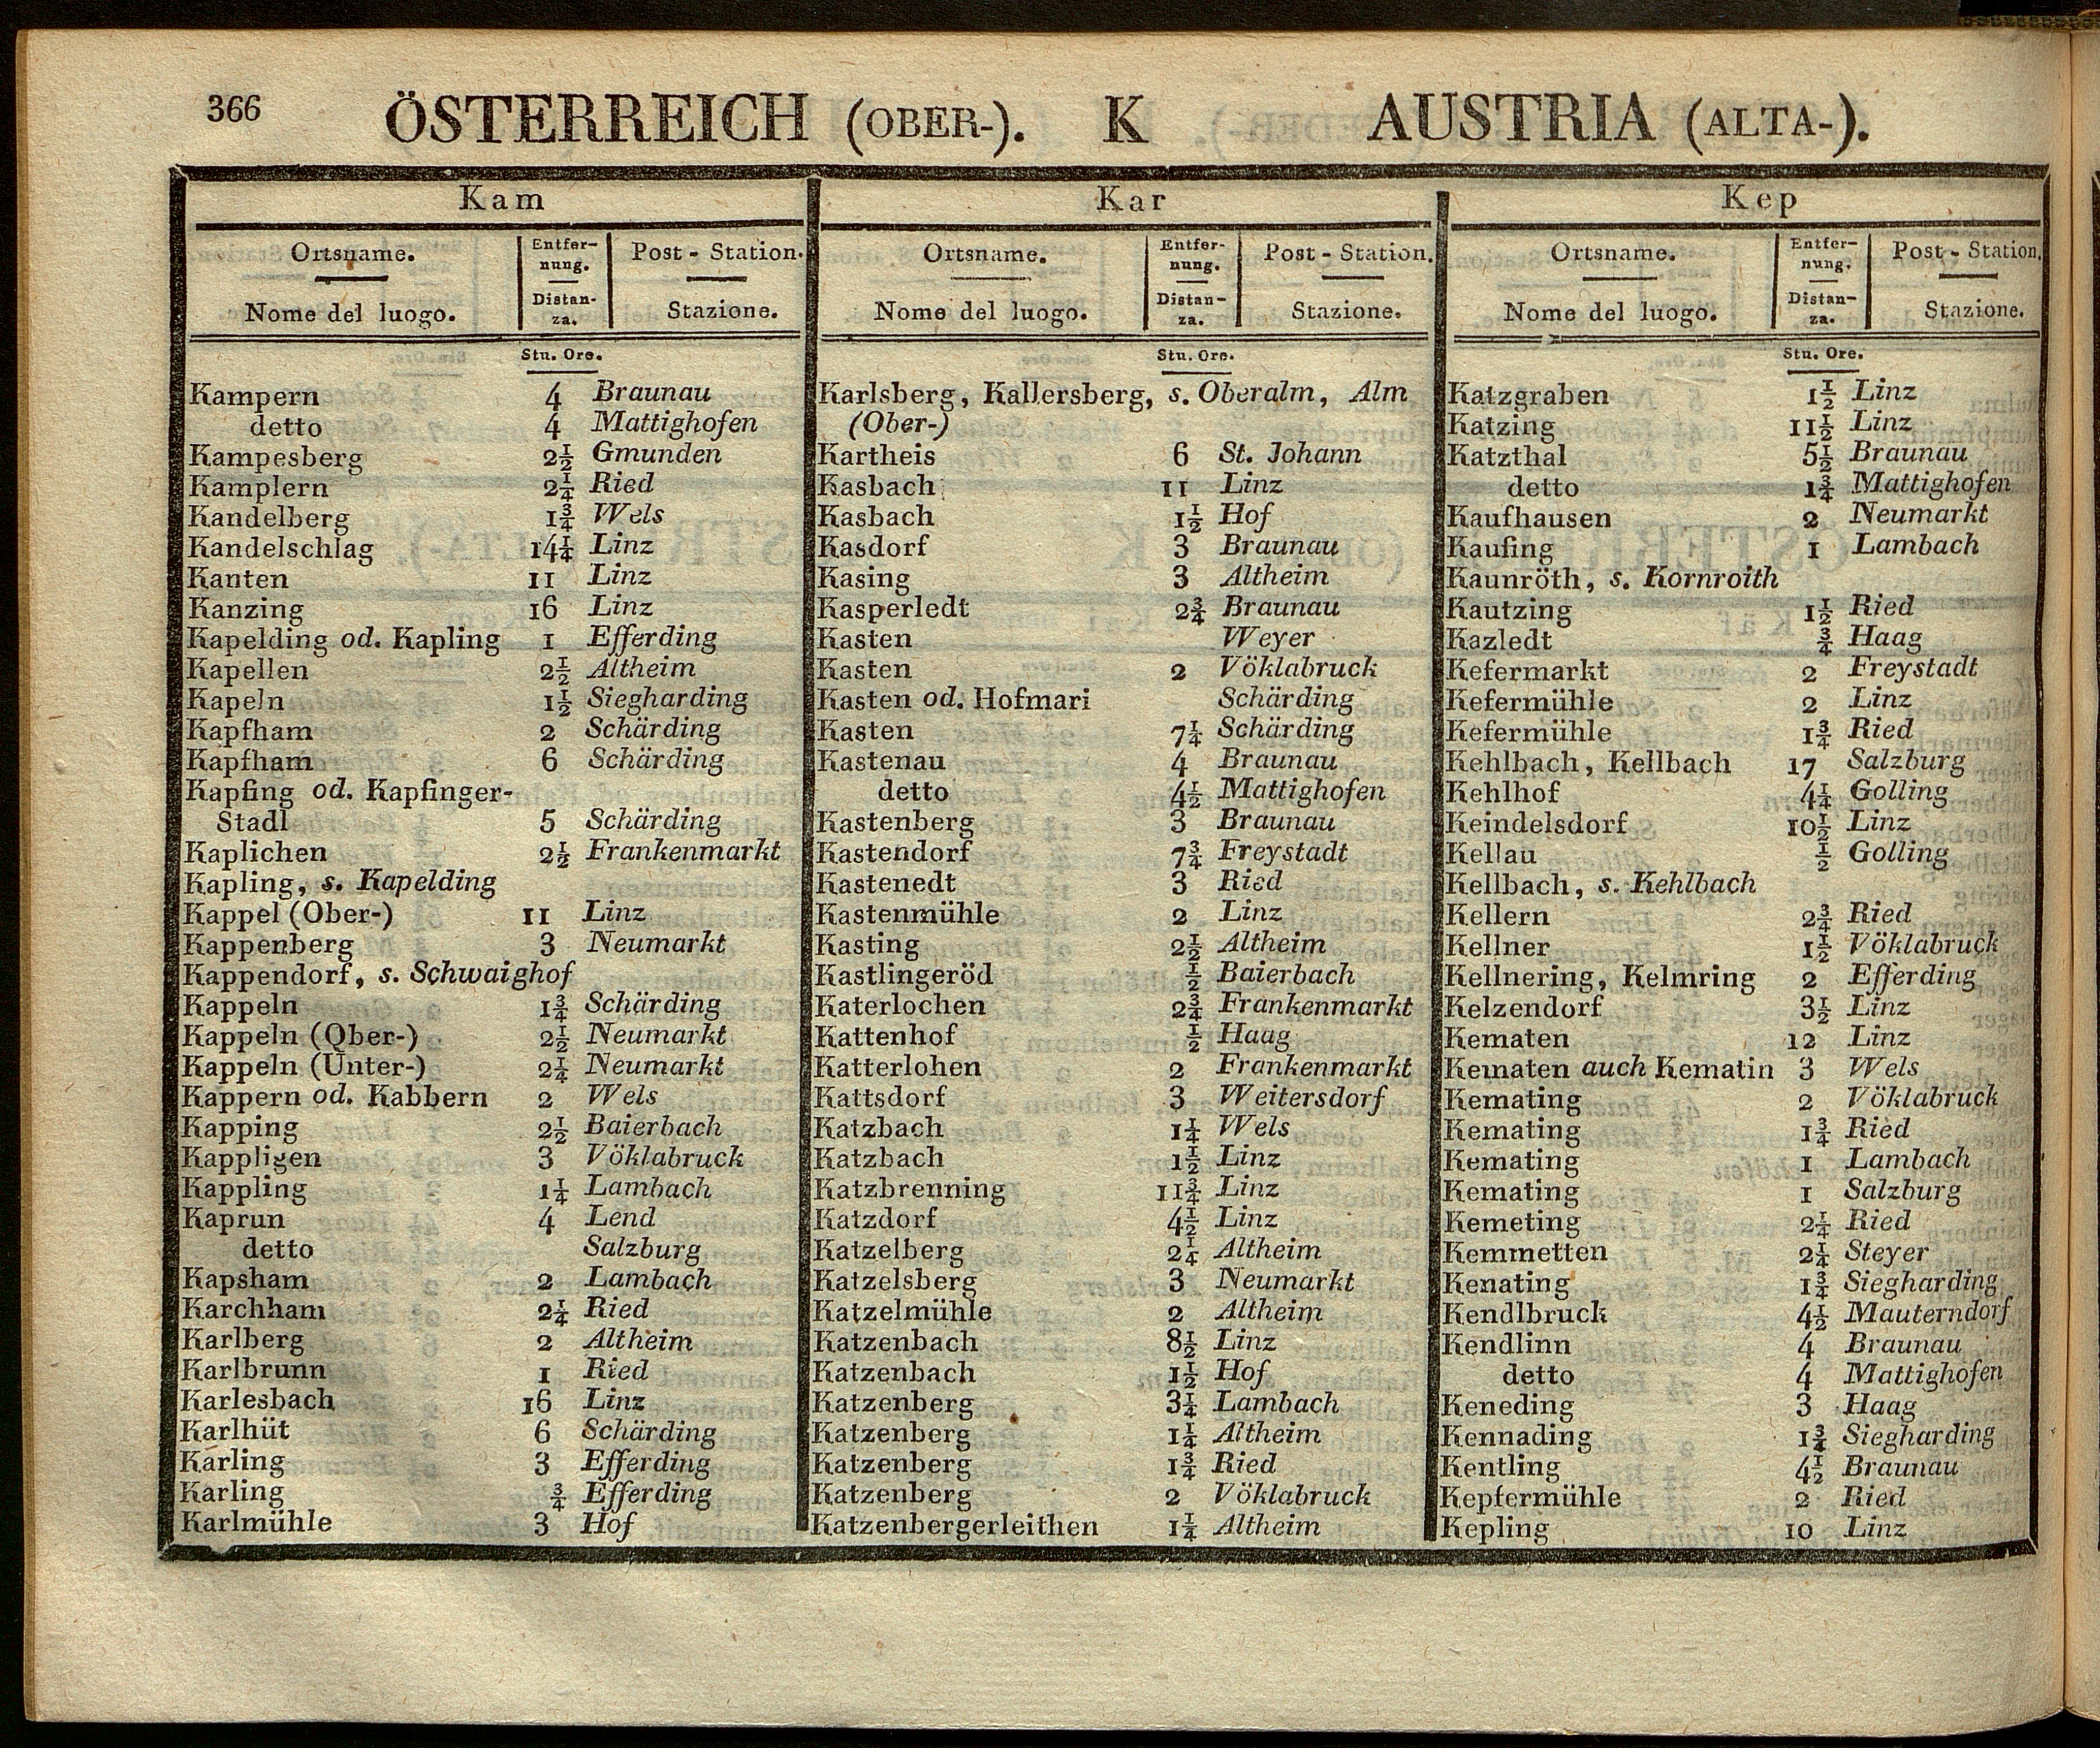 366 ÖSTERREICH (OBER-). K AUSTRIA (ALTA-).
Kam
Ortsname. Entfer- Post - Station.
nung.
Nome del luogo. Distan- Stazione.
za.
Stu. Ore.
Kampern 4 Braunau
detto 4 Mattighofen
Kampesberg 2½ Gmunden
Kamplern 2¼ Ried
Kandelberg 1¾ Wels
Kandelschlag 14¼ Linz
Kanten 11 Linz
Kanzing 16 Linz
Kapelding od. Kapling 1 Efferding
Kapellen 2½ Altheim
Kapeln 1½ Siegharding
Kapfham 2 Schärding
Kapfham 6 Schärding
Kapfing od. Kapfinger-
Stadl 5 Schärding
Kaplichen 2½ Frankenmarkt
Kapling, s. Kapelding
Kappel (Ober-) 11 Linz
Kappenberg 3 Neumarkt
Kappendorf, s. Schwaighof
Kappeln 1¾ Schärding
Kappeln (Ober-) 2½ Neumarkt
Kappeln (Unter-) 2¼ Neumarkt
Kappern od. Kabbern 2 Wels
Kapping 2½ Baierbach
Kappligen 3 Vöklabruck
Kappling 1¼ Lambach
Kaprun 4 Lend
detto Salzburg
Kapsham 2 Lambach
Karchham 2¼ Ried
Karlberg 2 Altheim
Karlbrunn 1 Ried
Karlesbach 16 Linz
Karlhüt 6 Schärding
Karling 3 Efferding
Karling ¾ Efferding
Karlmühle 3 Hof
Kar
Ortsname. Entfer- Post - Station.
nung.
Nome del luogo. Distan- Stazione.
za.
Stu. Ore.
Karlsberg, Kallersberg, s. Oberalm, Alm
(Ober-)
Kartheis 6 St. Johann
Kasbach 11 Linz
Kasbach 1½ Hof
Kasdorf 3 Braunau
Kasing 3 Altheim
Kasperledt 2¾ Braunau
Kasten Weyer
Kasten 2 Vöklabruck
Kasten od. Hofmari Schärding
Kasten 7¼ Schärding
Kastenau 4 Braunau
detto 4½ Mattighofen
Kastenberg 3 Braunau
Kastendorf 7¾ Freystadt
Kastenedt 3 Ried
Kastenmühle 2 Linz
Kasting 2½ Altheim
Kastlingeröd ½ Baierbach
Katerlochen 2¾ Frankenmarkt
Kattenhof ½ Haag
Katterlohen 2 Frankenmarkt
Kattsdorf 3 Weitersdorf
Katzbach 1¼ Wels
Katzbach 1½ Linz
Katzbrenning 11¾ Linz
Katzdorf 4½ Linz
Katzelberg 2¼ Altheim
Katzelsberg 3 Neumarkt
Katzelmühle 2 Altheim
Katzenbach 8½ Linz
Katzenbach 1½ Hof
Katzenberg 3¼ Lambach
Katzenberg 1¼ Altheim
Katzenberg 1¾ Ried
Katzenberg 2 Vöklabruck
Katzenbergerleithen 1¼ Altheim
Kep
Ortsname. Entfer- Post - Station.
nung.
Nome del luogo. Distan- Stazione.
za.
Stu. Ore.
Katzgraben 1½ Linz
Katzing 11½ Linz
Katzthal 5½ Braunau
detto 1¾ Mattighofen
Kaufhausen 2 Neumarkt
Kaufing 1 Lambach
Kaunröth, s. Kornroith
Kautzing 1½ Ried
Kazledt ¾ Haag
Kefermarkt 2 Freystadt
Kefermühle 2 Linz
Kefermühle 1¾ Ried
Kehlbach, Kellbach 17 Salzburg
Kehlhof 4¼ Golling
Keindelsdorf 10½ Linz
Kellau ½ Golling
Kellbach, s. Kehlbach
Kellern 2¾ Ried
Kellner 1½ Vöklabruck
Kellnering, Kelmring 2 Efferding
Kelzendorf 3½ Linz
Kematen 12 Linz
Kematen auch Kematin 3 Wels
Kemating 2 Vöklabruck
Kemating 1¾ Ried
Kemating 1 Lambach
Kemating 1 Salzburg
Kemeting 2¼ Ried
Kemmetten 2¼ Steyer
Kenating 1¾ Siegharding
Kendlbruck 4½ Mauterndorf
Kendlinn 4 Braunau
detto 4 Mattighofen
Keneding 3 Haag
Kennading 1¾ Siegharding
Kentling 4½ Braunau
Kepfermühle 2 Ried
Kepling 10 Linz